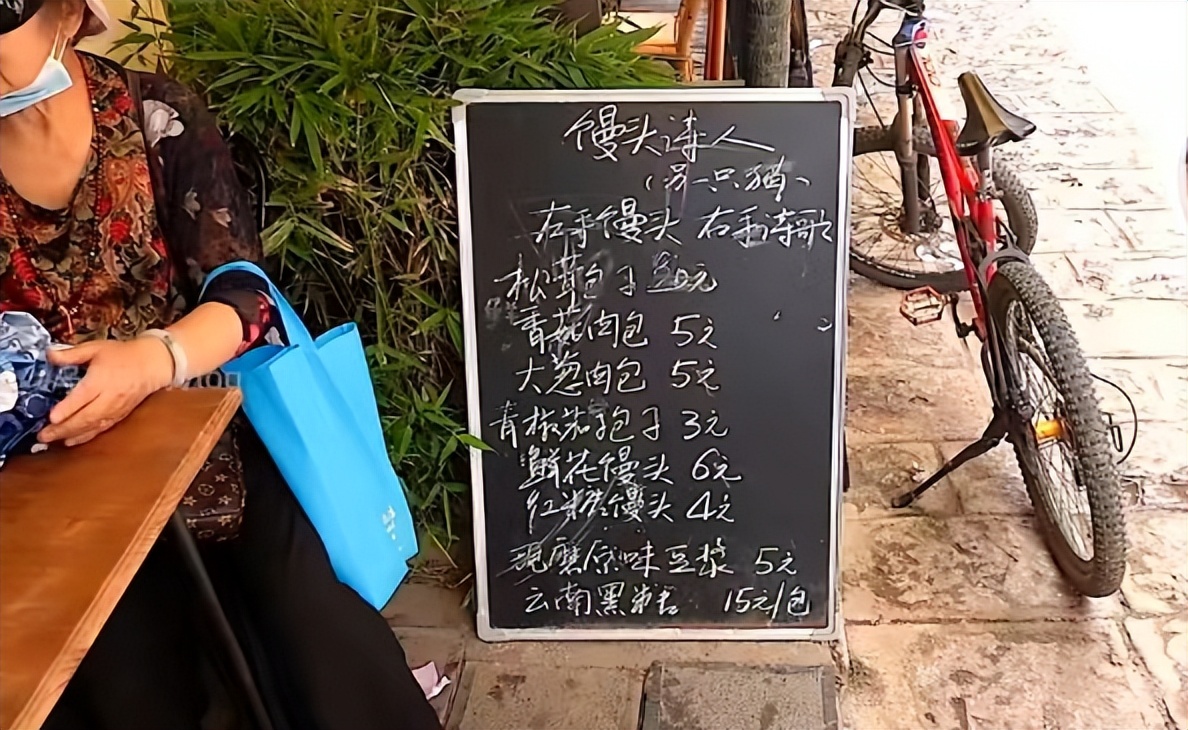 馒头诗人
（另一只猫）
右手馒头 右手诗歌
松茸包子 元
青菇肉包 5元
大葱肉包 5元
青椒茄孢子 3元
鲜花馒头 6元
红糖馒头 4元
现磨原味豆浆 5元
云南黑糖 15元/包